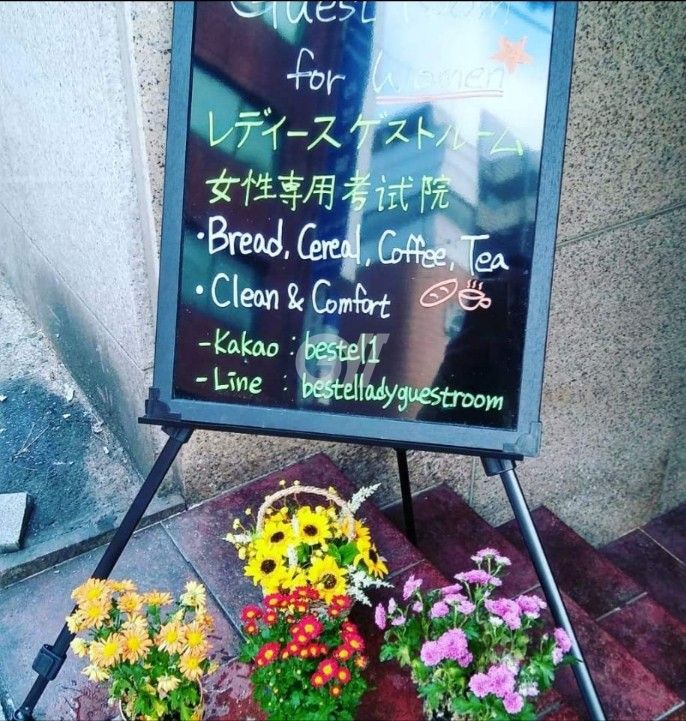 Guest Room
for Women
レディースゲストルーム
女性専用考试院
·Bread, Cereal, Coffee, Tea
·Clean & Comfort
-Kakao : bestel1
-Line : bestelladyguestroom